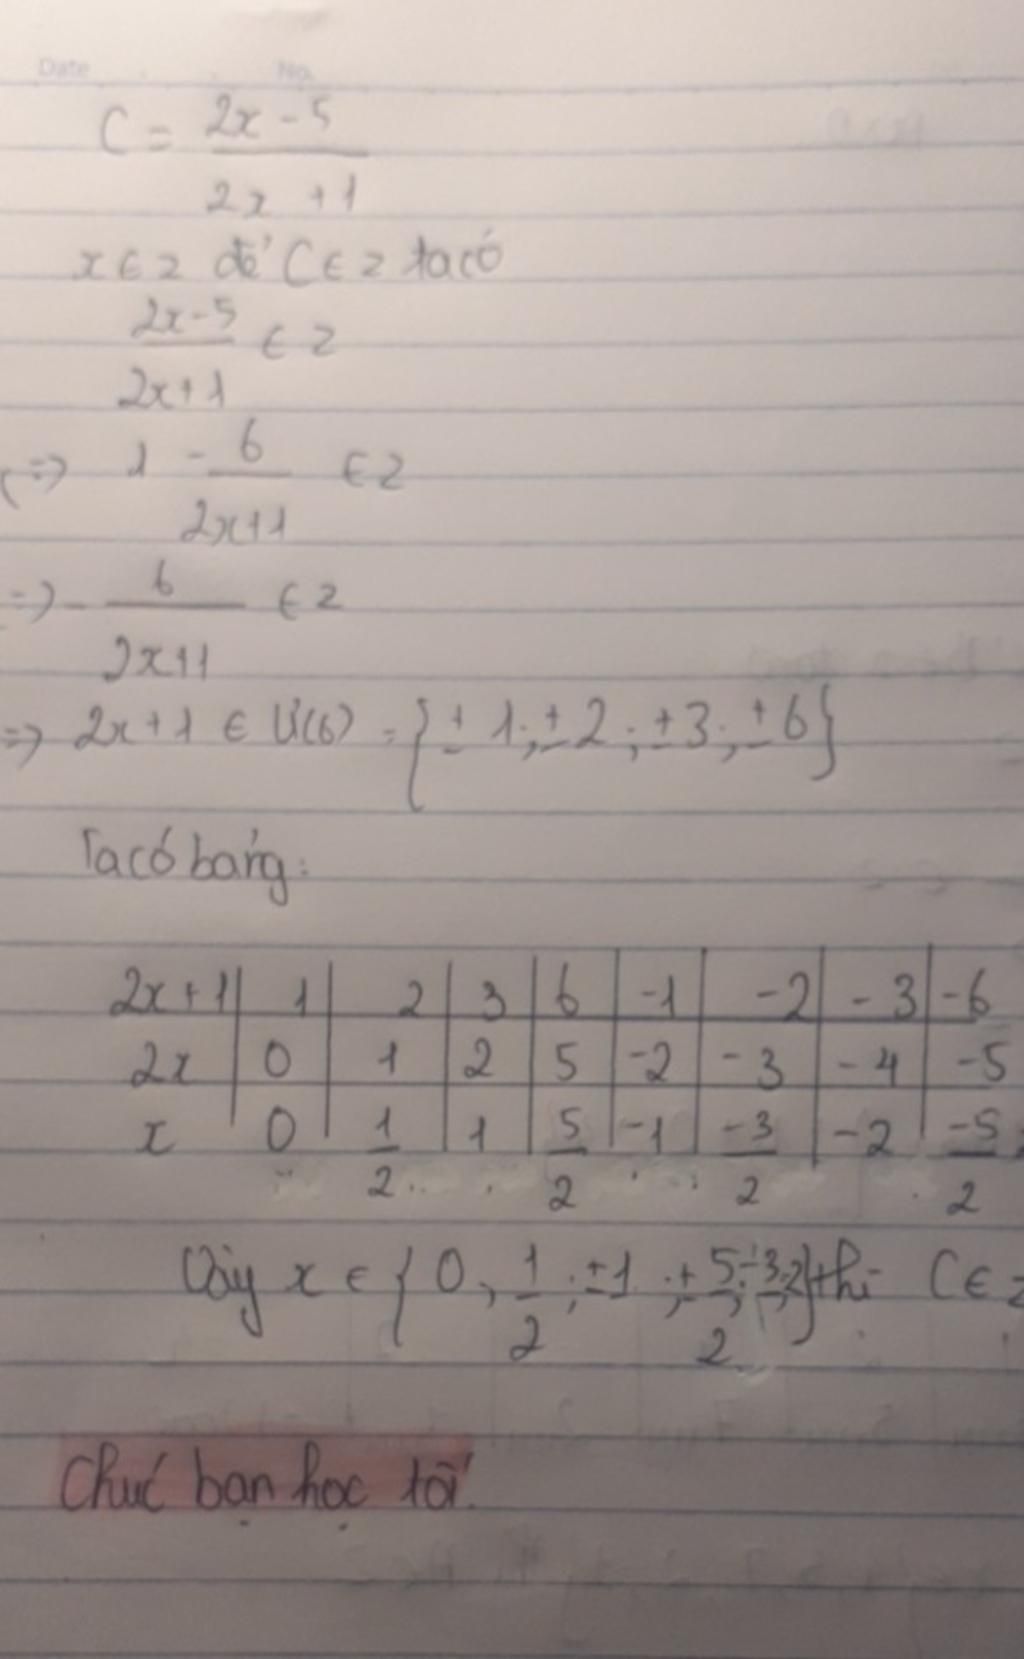 Date No.
C = 2x - 5 / 2x + 1
x ∈ z để C ∈ z ta có
2x - 5 / 2x + 1 ∈ z
=> 1 - 6 / 2x+1 ∈ z
=> - 6 / 2x+1 ∈ z
=> 2x + 1 ∈ Ư(6) = {± 1; ± 2; ± 3; ± 6}
Ta có bảng:
2x + 1 | 1 | 2 | 3 | 6 | -1 | -2 | -3 | -6
2x | 0 | 1 | 2 | 5 | -2 | -3 | -4 | -5
x | 0 | 1/2 | 1 | 5/2 | -1 | -3/2 | -2 | -5/2
Vậy x ∈ { 0, 1/2 ; ±1 ; ± 5/2 thì C ∈ z
Chúc bạn học tốt